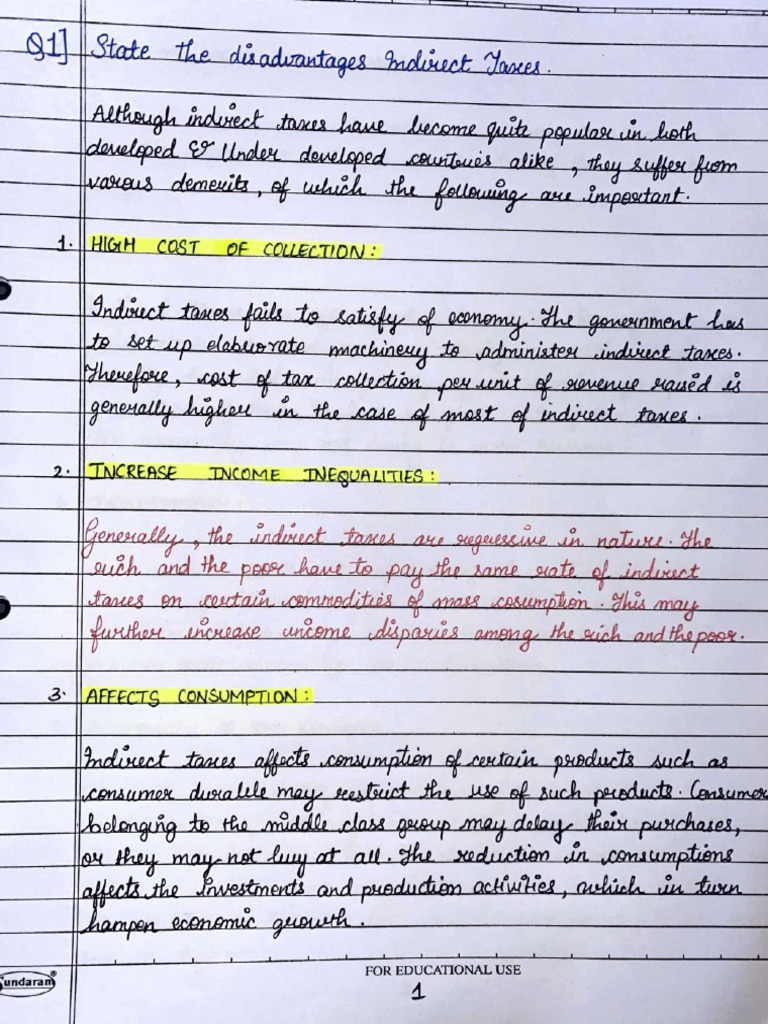 Q1] State the disadvantages Indirect Taxes.
Although indirect taxes have become quite popular in both
developed & Under developed countries alike, they suffer from
varous demerits, of which the following are important.
1. HIGH COST OF COLLECTION:
Indirect taxes fails to satisfy of economy. The government has
to set up elaborate machinery to administer indirect taxes.
Therefore, cost of tax collection per unit of revenue raised is
generally higher in the case of most of indirect taxes.
2. INCREASE INCOME INEQUALITIES:
Generally, the indirect taxes are regressive in nature. The
rich and the poor have to pay the same rate of indirect
taxes on certain commodities of mass cosumption. This may
further increase income disparies among the rich and the poor.
3. AFFECTS CONSUMPTION:
Indirect taxes affects consumption of certain products such as
consumer durable may restrict the use of such products. Consumer
belonging to the middle class group may delay their purchases,
or they may not buy at all. The reduction in consumptions
affects the investments and production activities, which in turn
hampen economic growth.
Sundaram®
FOR EDUCATIONAL USE
1